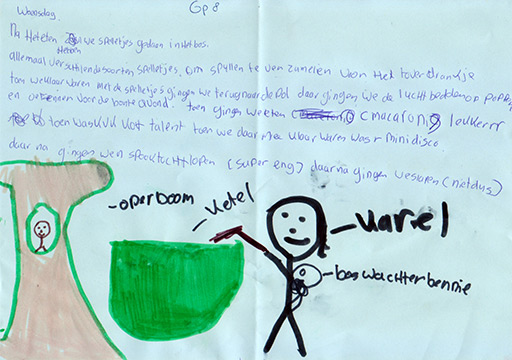 Woensdag. Gp 8
Na Heteten we spelletjes gedaan in Het bos.
allemaal verschillende soorten spelletjes. Om spullen te verzamelen voor Het toverdrankje
toen we klaar waren met de spelletjes gingen we terug naar de Pol daar gingen we de luchtbedden op
en oefennen voor de bonte avond. toen gingen we eten (macaroni) lekkerrr
toen was kvd kost talent toen we daar mee klaar waren was r mini disco.
daar na gingen we n spooktocht lopen (super eng) daar na gingen we slapen (net dus)
-operboom
-Ketel
-Karel
-boswachter bennie